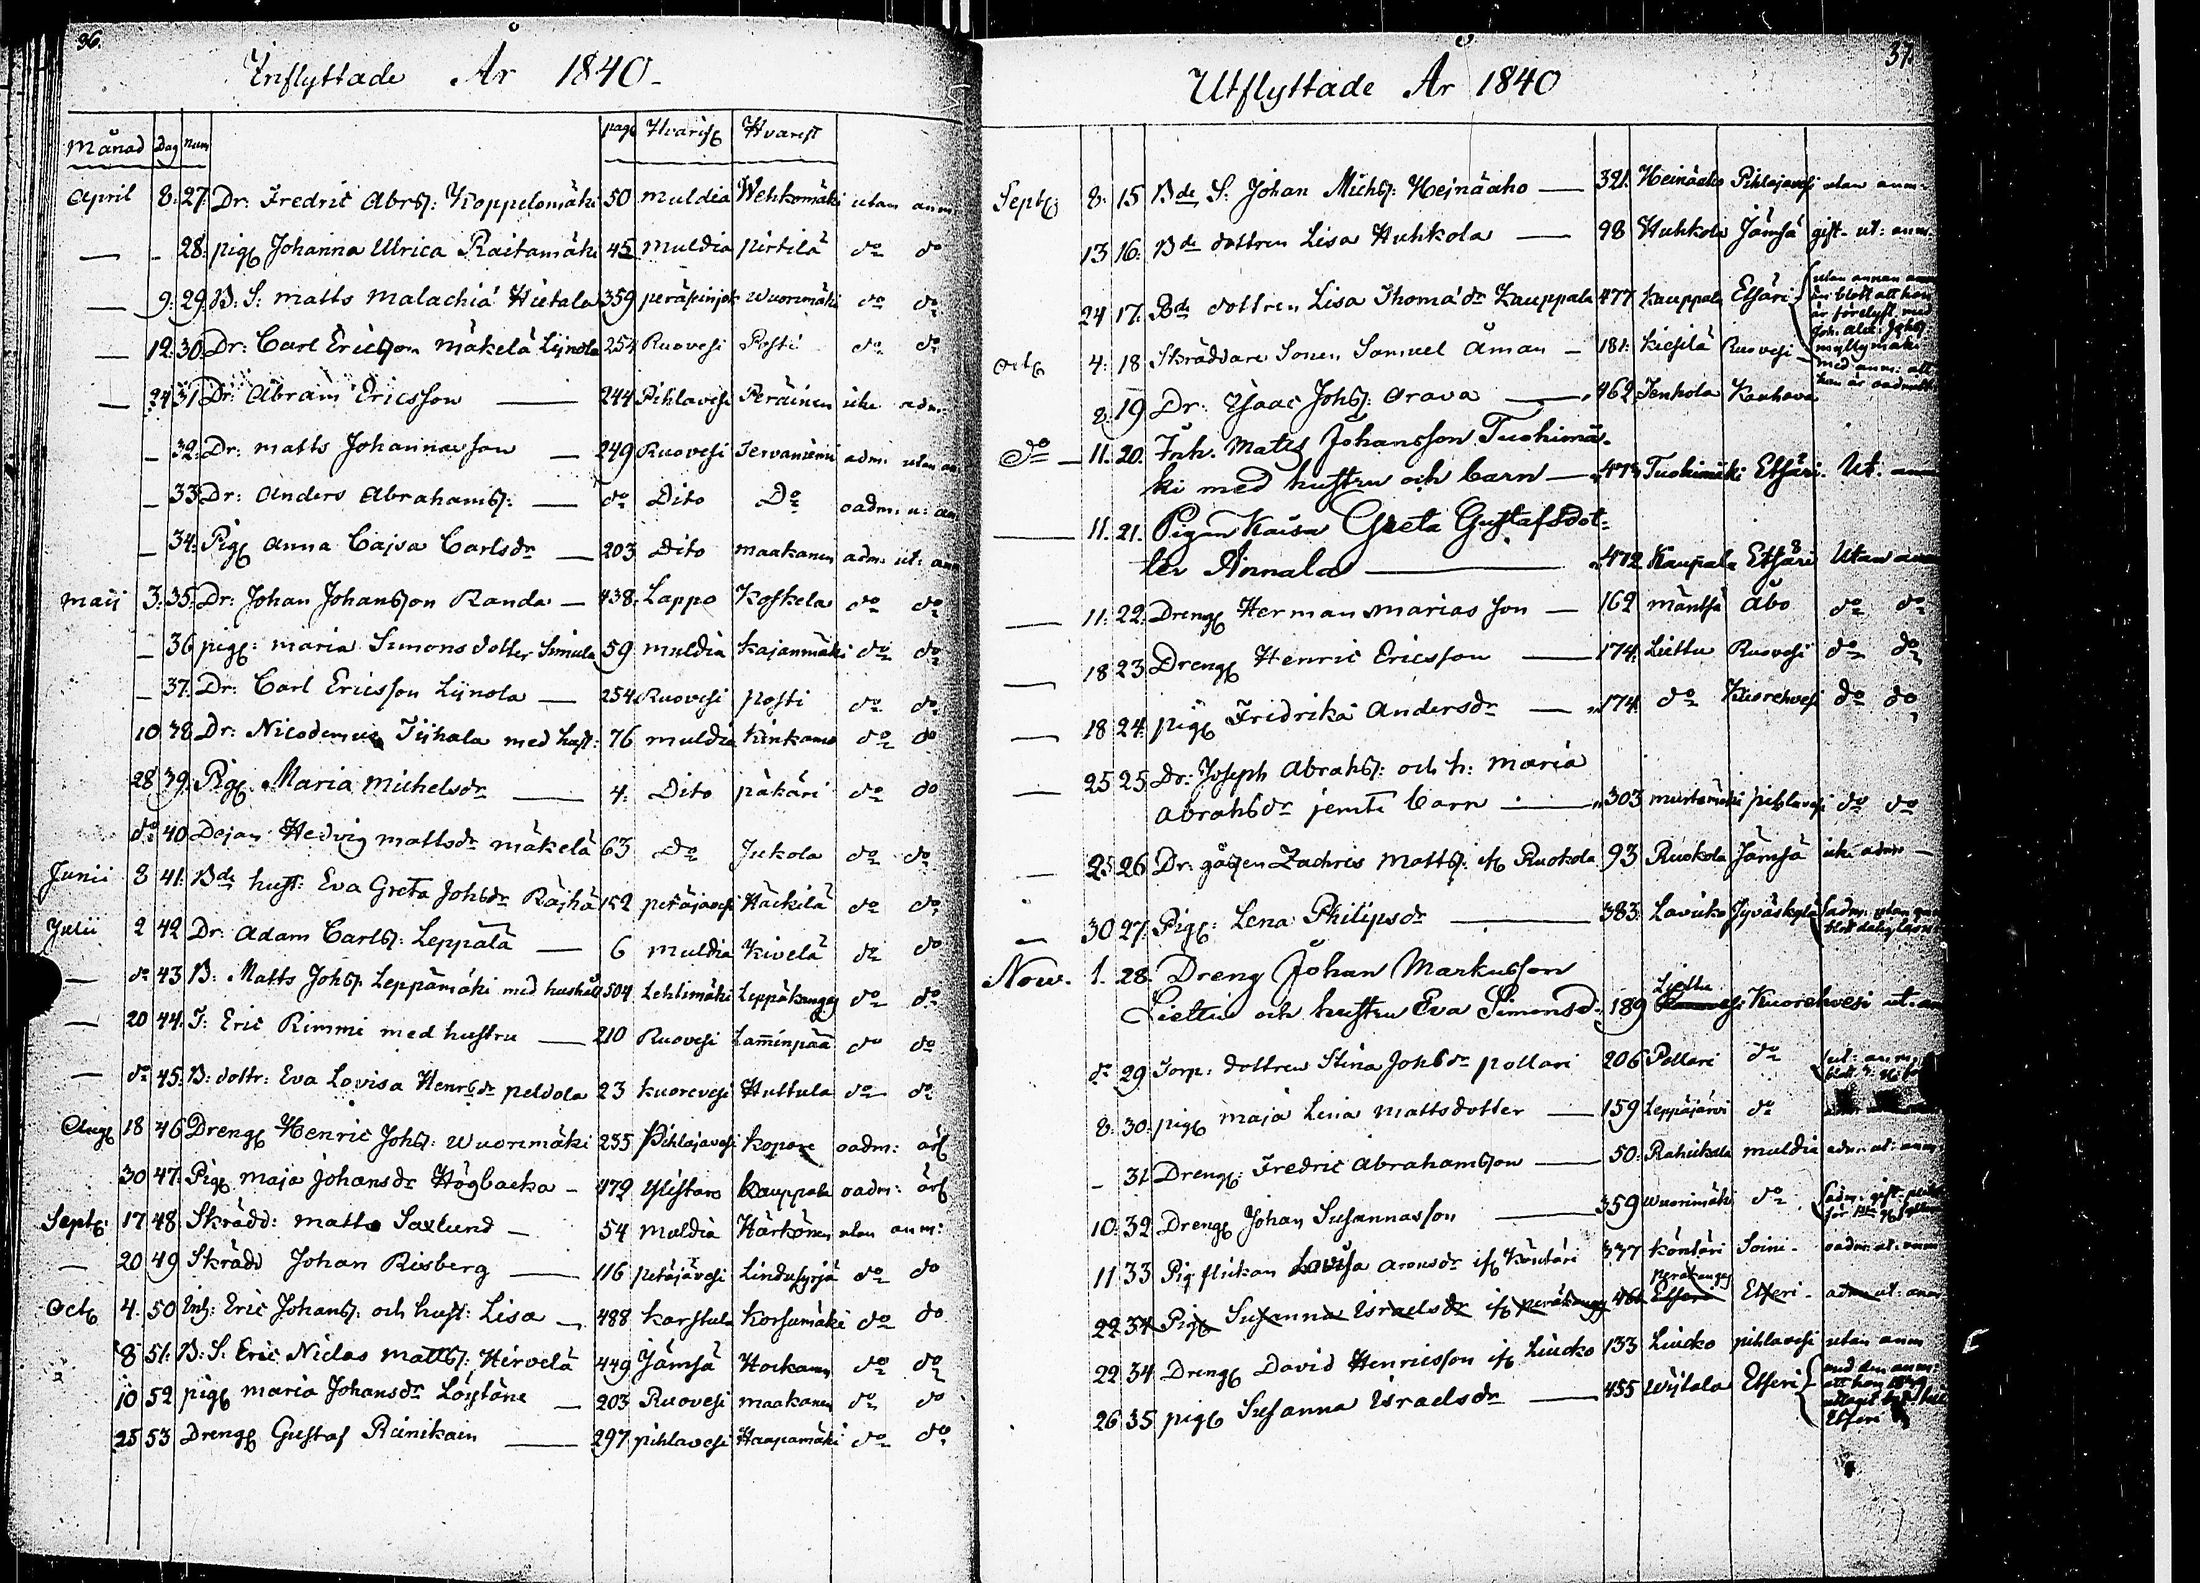 36.
Inflyttade År 1840-
Månad Dag num page Hvarifr Hvarest
April 8. 27. Dr: Fredric Abrs: Koppelomäki 50 muldia Wehkomäki utan anm:
— - 28. pig Johanna Ulrica Raitamäki 45 muldia pirtilä do do
— 9. 29. B: S: matts Malachiä Hietala 359 Wuorimäki do do
— 12. 30. Dr: Carl Ericsson Mäkelä Lijnola 254 Ruovesi Posti do do
— 24 31 Dr: Abram Ericsson — 244 Pihlavesi Peräinen icke adm:
- 32. Dr: matts Johannesson — 249 Ruovesi Tervaniemi adm: utan an
- 33 Dr: Anders Abrahams: — do Dito Do oadm. u: an
- 34. Pig Anna Cajsa Carlsdr — 203 Dito maakanen adm. ut: anm
maij 3. 35. Dr: Johan Johansson Randa — 438. Lappo Koskela do do
- 36 pig: maria Simonsdotter Simula 59 muldia Kajanmäki do do
- 37. Dr: Carl Ericsson Lijnola — 254 Ruovesi posti do do
10 38 Dr: Nicodemus Iijhala med hust: 76 muldia Kinkamo do do
28 39. Pig Maria Michelsdr — 4. Dito päkäri do do
do 40 Dejan Hedvig mattsdr mäkelä 63 Do Jukola do do
Junii 8 41. Bde hust: Eva Greta Johsdr Räjhä 152 petäjävesi Häckilä do do
Julii 2 42 Dr: Adam Carls: Leppälä — 6 muldia Kivelä do do
— do 43 B: Matts Johs: Leppämäki med hushåll 504 Lehtimäki Leppäkangas do do
— 20 44. I: Eric Rimmi med hustru — 210 Ruovesi Laminpää do do
— do 45. B: dottr: Eva Lovisa Henrsdr peldola 23 kuorevesi Huttula do do
Aug 18 46 Dreng Henric Johs: Wuorimäki 235 Pihlajavesi Kopone oadm:
30 47. Pig maja Johansdr Högbacka — 472 Ylistaro Kauppala oadm:
Sept: 17 48 Skrädd: matts Saxlund — 54 Muldia Härkönen utan anm:
— 20 49 Skrädd Johan Risberg — 116 petäjävesi Lindusyrjä do do
Oct 4. 50 Inh: Eric Johans: och hust: Lisa — 488 Karstula Korsumäki do do
8 51. B: S: Eric Niclas matts: Hirvelä 449 Jämsä Hockanen do do
10 52 pig maria Johansdr Löytäne — 203 Ruovesi maakanen do do
25 53 Dreng Gustaf Reinikain — 297 pihlavesi Haapamäki do do
37.
Utflyttade År 1840
Sept: 8. 15 Bde S: Johan Michs: Heinäaho — 321. Heinäaho Pihlajavesi utan anm-
13 16. Bde dottren Lisa Huhkola — 98 Huhkola Jämsä gift- ut: anm:
24 17. Bde dottren Lisa Thomædr Kauppala 477 Kauppala Etsäri utan annan anm
än blott att hon
är förelyst med
Joh. Alex: Johs
myllymäki
Oct 4. 18 Skräddare Sonen Samuel Åman — 181. Kiesilä Ruovesi med anm: att
han är oadmitt
8. 19 Dr: Isaac Johs: Arava — 462 Jenkola Kauhava
do — 11. 20. Inh. Matts Johansson Tuohimä-
ki med hustru och barn — 473 Tuohimäki Etsäri. Ut. anm
— 11. 21. Pigan Kaisa Greta Gustafsdot-
ter Annala — 472 Kaupala Etsäri Utan anm
— 11. 22. Dreng Herman Mariasson — 162 mäntsä Åbo do do
— 18 23 Dreng Henric Ericsson — 174. Liettu Ruovesi do do
— 18 24. pig Fredrika Andersdr — 174. do Kuorehvesi do do
— 25 25 Dr: Joseph Abrahs: och h: maria
Abrahsdr jemte barn — 303 murtomäki pihlavesi do do
— 25 26 Dr: gåssen Zachris Matts: ifr Ruokola 93 Ruokola Jämsä icke adm —
— 30 27. Pig: Lena Philipsdr — 383. Lavicko Jyväskylä
Nov. 1. 28. Dreng Johan Markusson
Liettu
Liettu och hustru Eva Simonsd. 189 Kuorehvesi ut. an
do 29 Torp: dottren Stina Johsdr pollari 206 Pollari do ut: anm
8. 30. pig maja Lena Mattsdotter — 159 Leppäjärvi do
- 31 Dreng: Fredric Abrahamsson — 50. Rahikala muldia adm ut: anm
10. 32 Dreng Johan Susannasson — 359 Wuorimäki do
11 33 Pigflickan Lovisa Aronsdr ifr Köntäri 337 Köntäri Soini- oadm: ut: anm
peräkangas
22 34 Pig Susanna Israelsdr ifr peräkangas 460 Etseri Etseri - adm ut: anm
22 34 Dreng David Henricsson ifr Liucko 133 Liucko pihlavesi utan anm
26 35 pig Susanna Israelsdr — 455 Wijtala Etseri med den anm:
att hon 1839
uttagit
Etseri